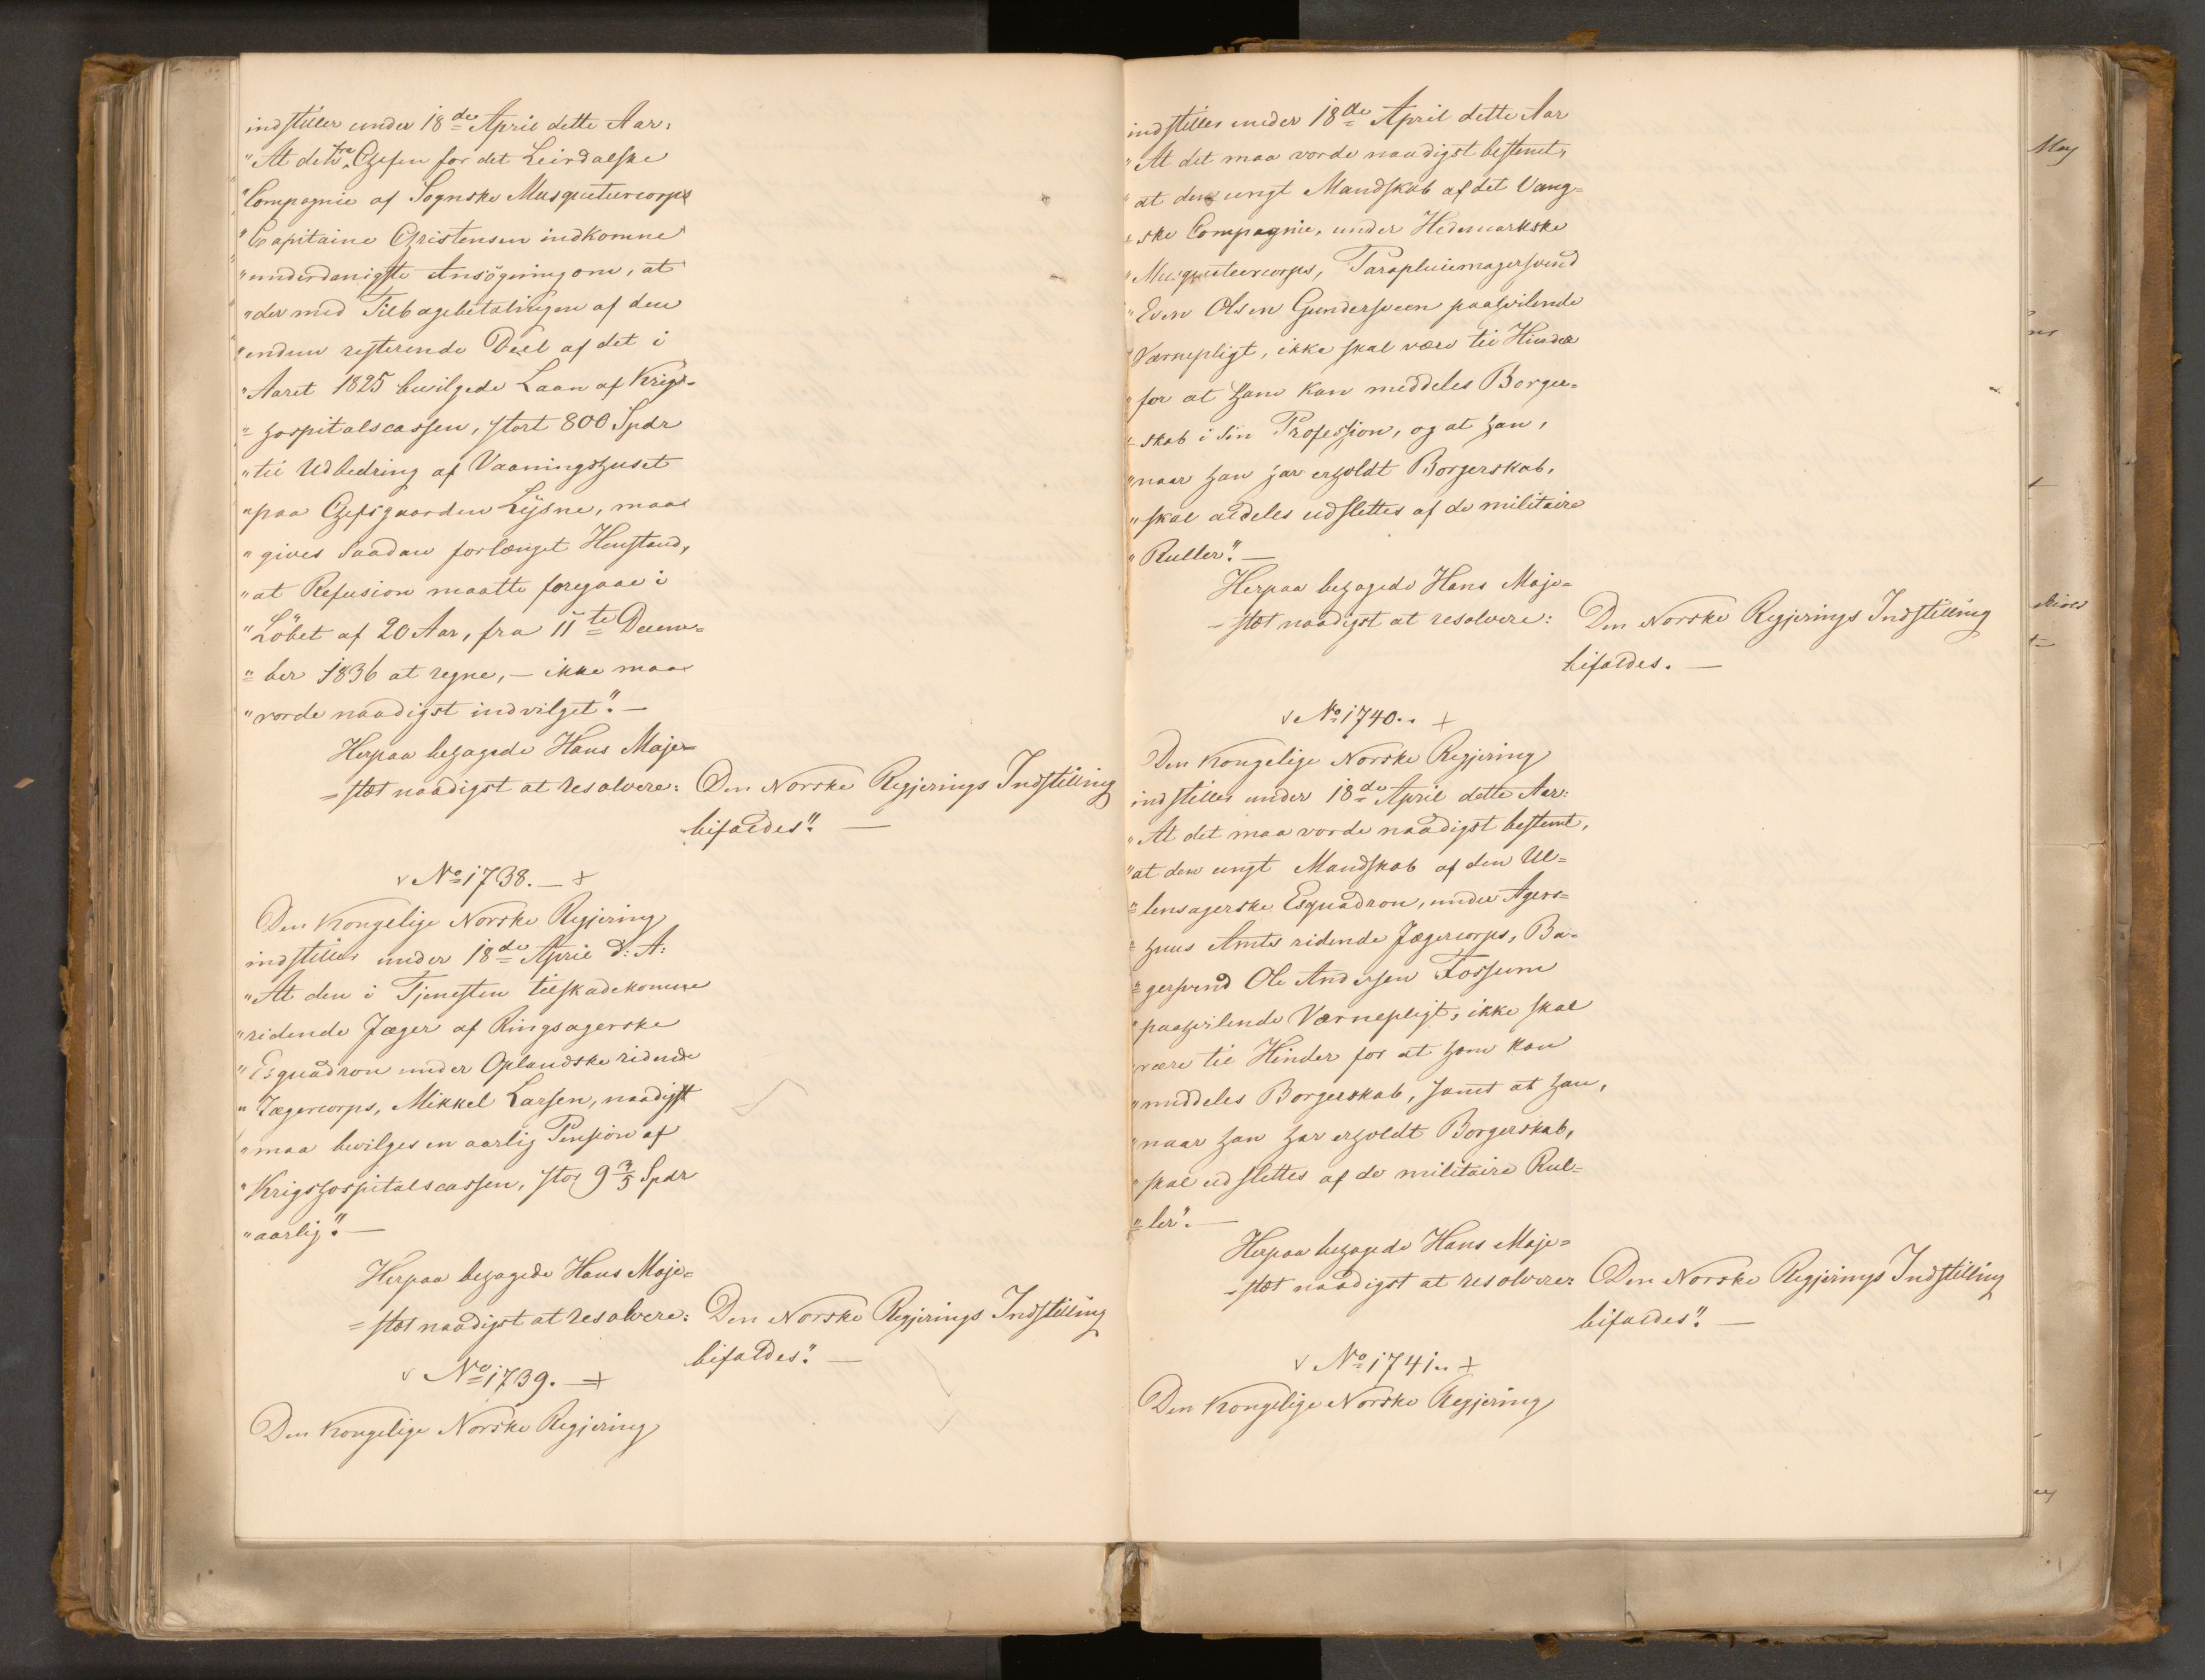 indstiller under 18de April dette Aar:
"At den fra Chefen for det Leirdalske
"Compagnie af Sognske Musqueteercorps
"Capitaine Christensen indkomne
"underdanigste Ansögning om, at
"der med Tilbagebetalingen af den
"endnu resterende Deel af det i
"Aaret 1825 bevilgede Laan af Krigs-
"=hospitalscassen, stort 800 Spdr
"til Udbedring af Vaaningshuset
"paa Chefsgaarden Lysne, maa
"gives saadan forlænget Henstand,
"at Refusion maatte foregaae i
"Löbet af 20 Aar, fra 11te Decem=
"=ber 1836 at regne, — ikke maa
"vorde naadigst indvilget". —
Herpaa behagede Hans Maje=
=stæt naadigst at resolvere: Den Norske Regjerings Indstilling
bifaldes". —
No 1738. —
Den Kongelige Norske Regjering
indstiller under 18de April d: A:
"At den i Tjenesten tilskadekomne
"ridende Jæger af Ringsagerske
"Esquadron under Oplandske ridende
"Jægercorps, Mikkel Larsen, naadigst
"maa bevilges en aarlig Pension af
"Krigshospitalscassen, stor 9 3/5 Spdr
"aarlig". —
Herpaa behagede Hans Maje=
=stæt naadigst at resolvere: Den Norske Regjerings Indstilling
bifaldes". —
No 1739. —
Den Kongelige Norske Regjering
indstiller under 18de April dette Aar
"At det maa vorde naadigst bestemt,
"at den ungt Mandskab af det Vang=
"=ske Compagnie, under Hedemarkske
"Musqueteercorps, Parapluiemagersvend
"Even Olsen Gundersveen paahvilende
"Værnepligt, ikke skal være til Hinder
"for at ham kan meddeles Borger=
"=skab i sin Profession, og at han,
"naar han har erholdt Borgerskab,
"skal aldeles udslettes af de militaire
"Ruller". —
Herpaa behagede Hans Maje=
=stæt naadigst at resolvere: Den Norske Regjerings Indstilling
bifaldes. —
No 1740.
Den Kongelige Norske Regjering
indstiller under 18de April dette Aar:
"At det maa vorde naadigst bestemt,
"at den ungt Mandskab af den Ul=
"=lensagerske Esquadron, under Agers=
"=huus Amts ridende Jægercorps, Ba=
"=gersvend Ole Andersen Fossum
"paahvilende Værnepligt, ikke skal
"være til Hinder for at ham kan
"meddeles Borgerskab, samt at han,
"naar han har erholdt Borgerskab,
"skal udslettes af de militaire Rul=
"=ler". —
Herpaa behagede Hans Maje=
=stæt naadigst at resolvere: Den Norske Regjerings Indstilling
bifaldes". —
No 1741.
Den Kongelige Norske Regjering
May